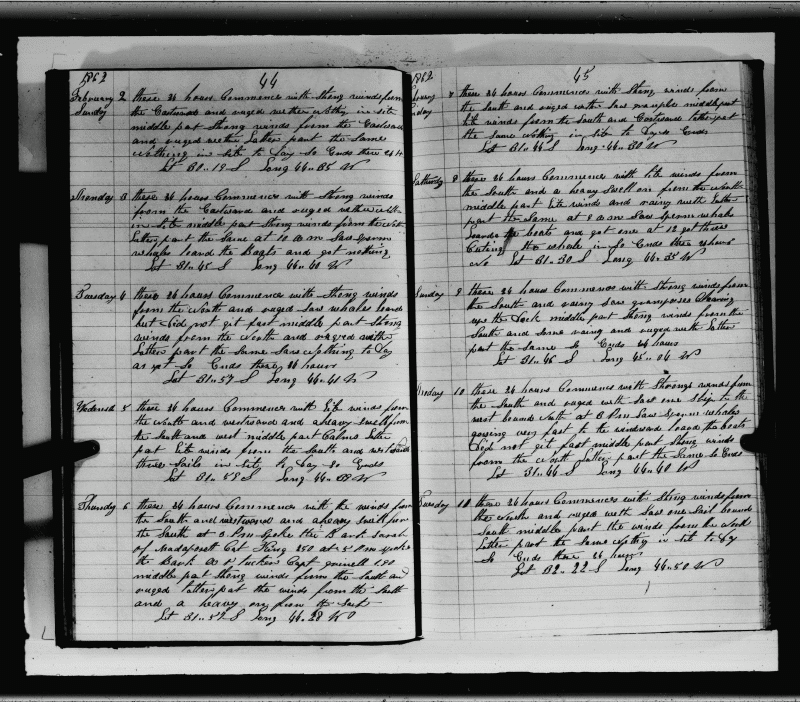 1862
44
February 2 these 24 hours Commence with Strong winds from
Sunday the Eastward and ruged wether nothing in site
middle part Strong winds from the Eastward
and ruged wether Latter part the Same
nothing in site to Day So Ends these 24 h
Lat 30..19 S Long 44..35 W
Monday 3 these 24 hours Commence with Strong winds
from the Eastward and ruged wether
in Site middle part Strong winds from the
Latter part the Same at 10 am Saw Sperm
whales loard the Boats and got nothing
Lat 31..45 S Long 44..40 W
Tuesday 4 these 24 hours Commence with Strong winds
from the North and ruged Saw whales loard
but Did not get fast middle part Strong
winds from the North and ruged with
Latter part the Same Saw Nothing to Day
as yet So Ends these 24 hours
Lat 31..57 S Long 44..41 W
Wedensd 5 these 24 hours Commence with lite winds from
the North and westward and a heavy swell from
the South and west middle part Calms Latter
part lite winds from the South and westward
three Sails in Site to Day So Ends
Lat 31..58 S Long 44..33 W
Thursdy 6 these 24 hours Commence with the winds from
the South and westward and a heavy swell from
the South at 3 Pm Spoke the Bark Sarah
of Mattapoisett Capt King 250 at 5 Pm spoke
the Bark A R Tucker Capt 180
middle part Strong winds from the South and
ruged Latter part the winds from the South
and a heavy on from the South
Lat 31..52 S Long 44..28 W
1862
45
7 these 24 hours Commence with Strong winds from
the South and ruged wether Saw middle part
lite winds from the South and Eastward Latter part
the Same nothing in site to Day So Ends
Lat 31..44 S Long 44..30 W
Saturday 8 these 24 hours Commence with lite winds from
the South and a heavy Swell on from the North
middle part lite winds and rainy weth Latter
part the Same at 8 am Saw Sperm whales
loard the boats and got one at 12 got thrue
Cuting the whale in So Ends these 24 hours
Lat 31..30 S Long 44..35 W
Sunday 9 these 24 hours Commence with Strong winds from
the South and rainy Saw grampuses Cleaning
up the Deck middle part Strong winds from the
South and Some rainy and ruged with Latter
part the Same So Ends 24 hours
Lat 31..46 S Long 45..04 W
Monday 10 these 24 hours Commence with Stronge winds from
the South and ruged with Saw one Ship to the
west bound North at 3 Pm Saw Sperm whales
going very fast to the windward loard the boats
Did not get fast middle part Strong winds
from the North Latter part the Same So Ends
Lat 31..44 S Long 44..40 W
Tuesday 11 these 24 hours Commence with Strong winds from
the North and ruged with Saw one Sail bound
South middle part the winds from the North
Latter part the Same nothing in site to Day
So Ends these 24 hours
Lat 32..22 S Long 44..50 W